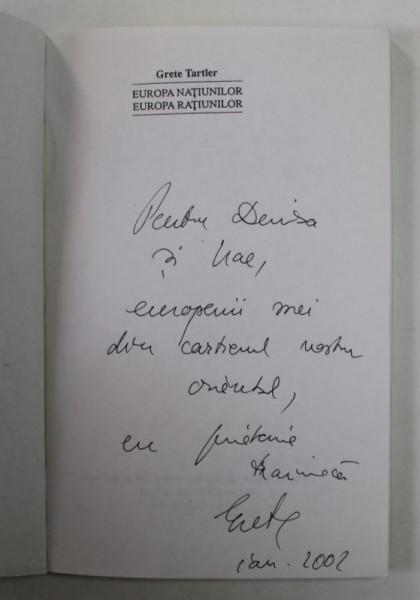 Grete Tartler
EUROPA NAŢIUNILOR
EUROPA RAŢIUNILOR
Pentru Denisa
și Nae,
europenii mei
din cartierul nostru
oriental,
cu prietenie
trainică
Grete
ian. 2002